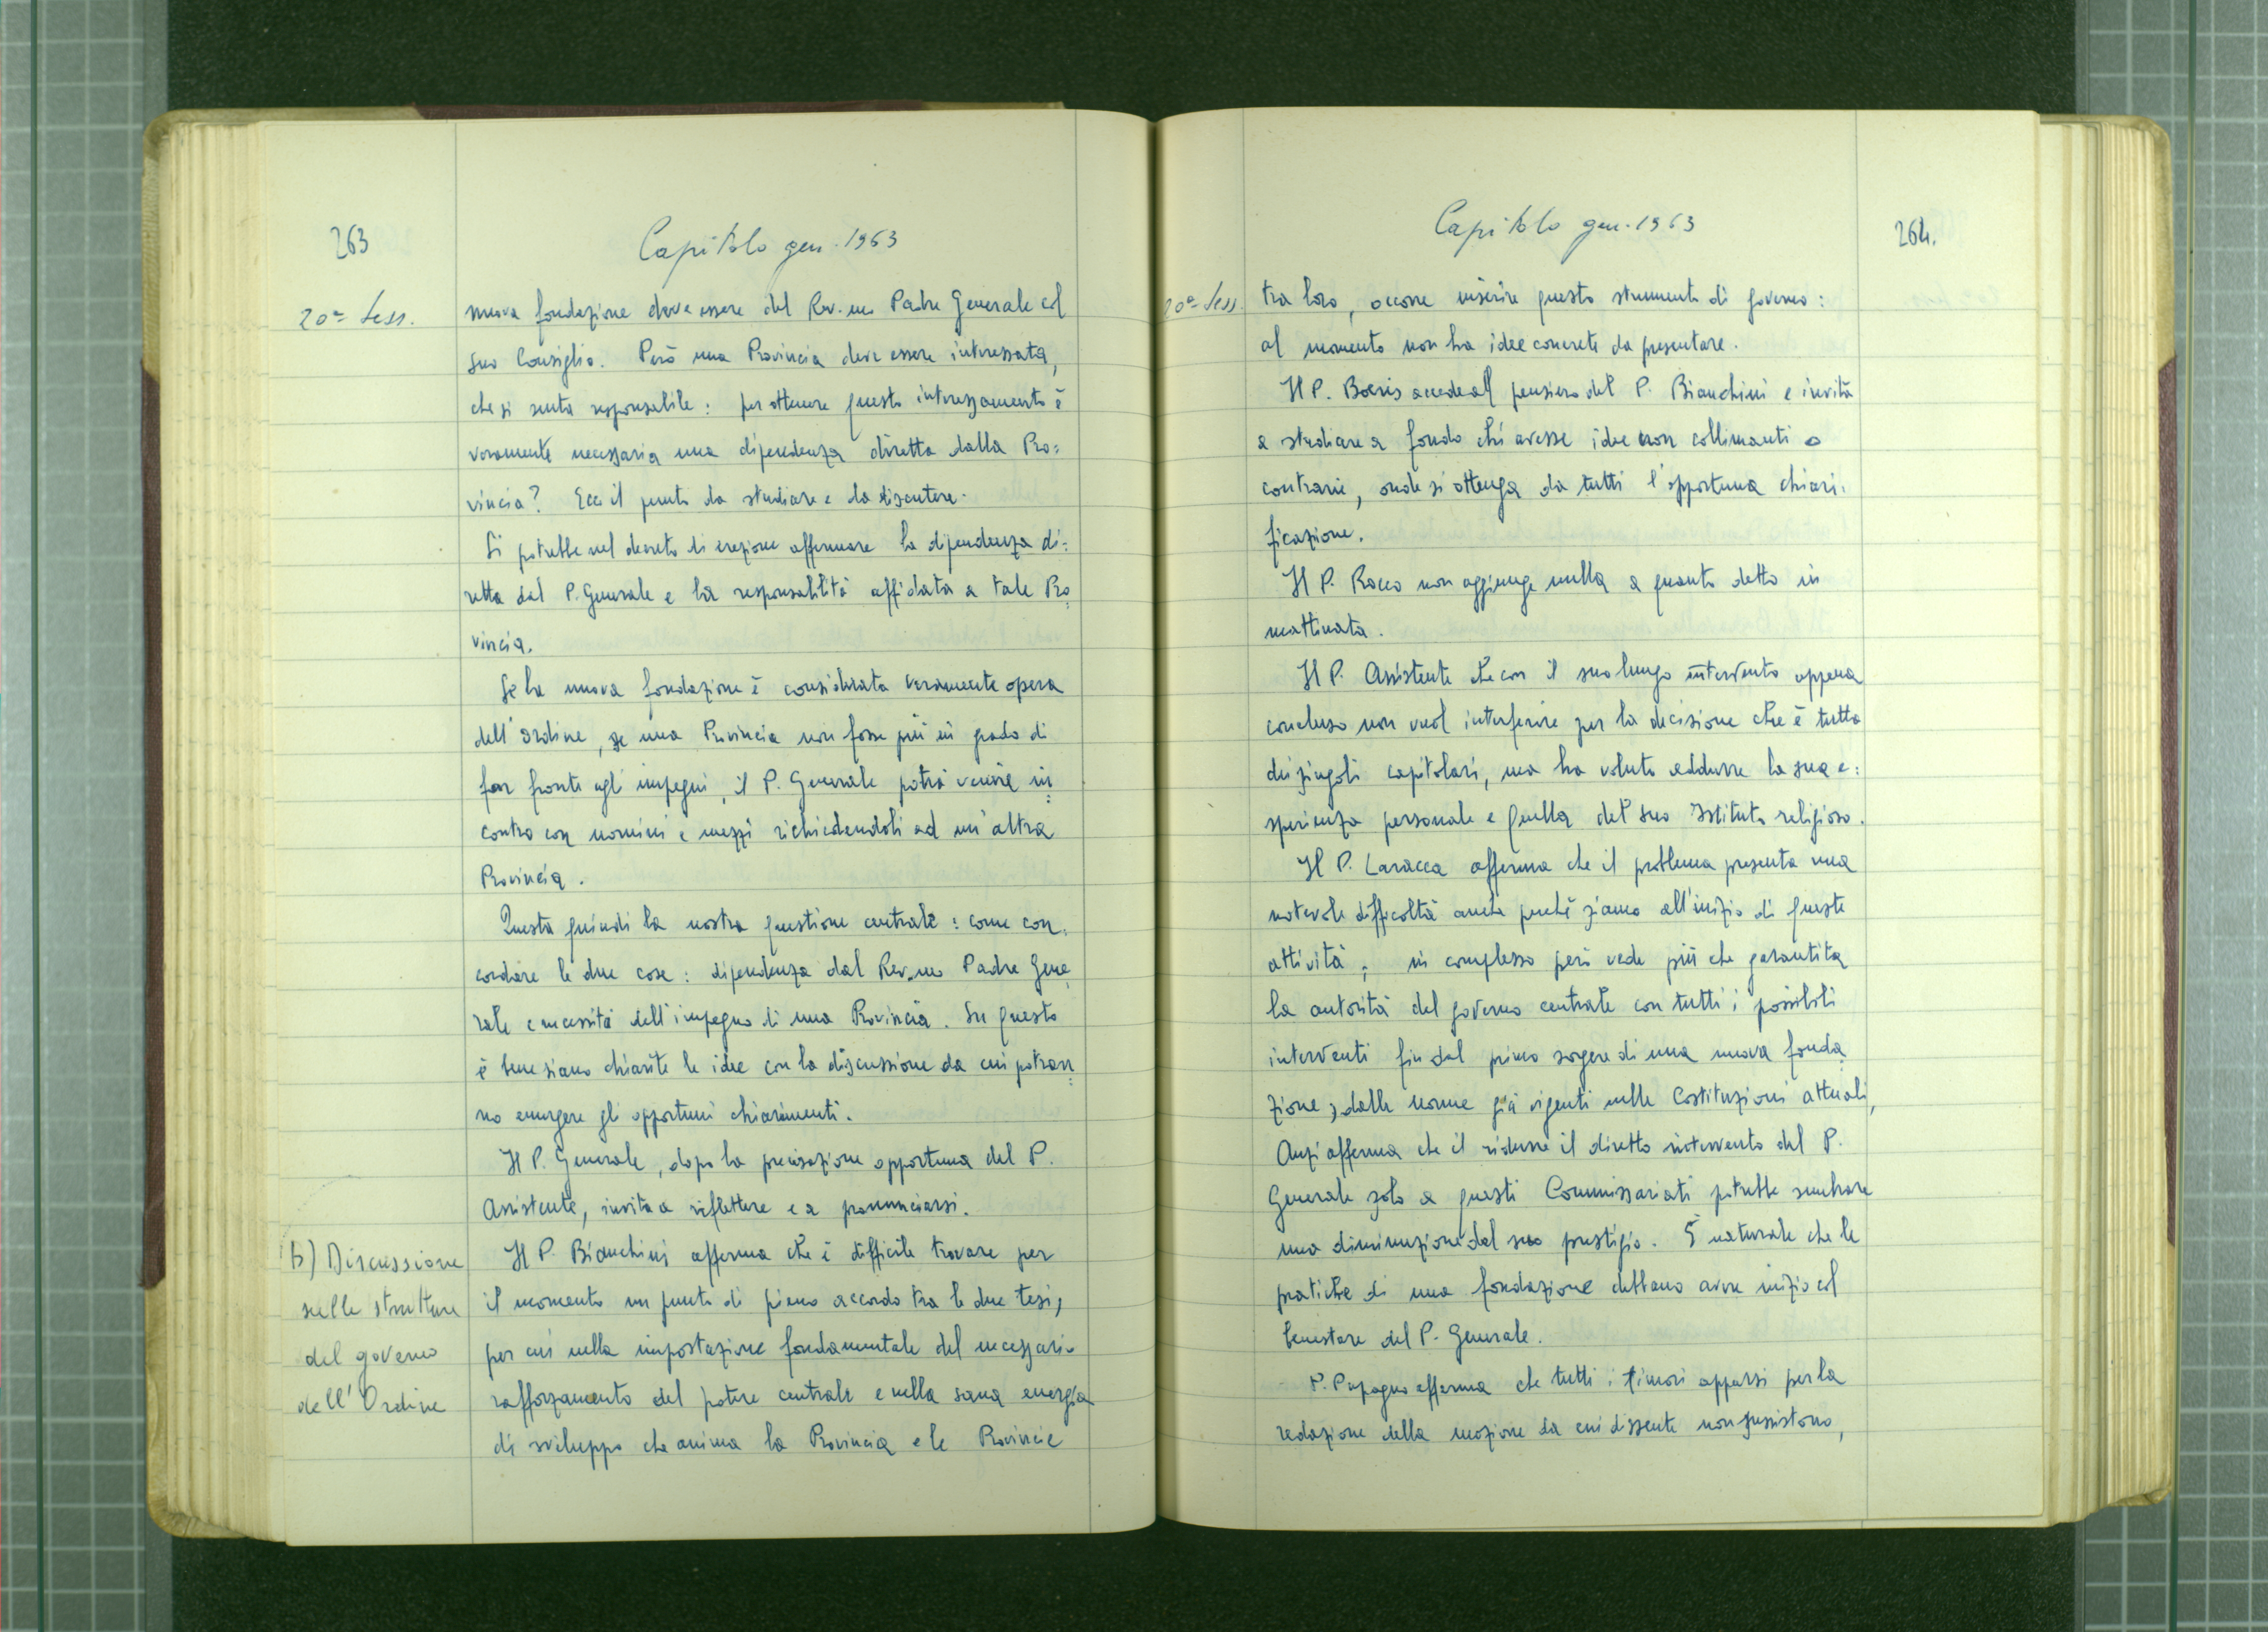 263
Capitolo gen. 1963
20ª Sess.
nuova fondazione deve essere del Rev.mo Padre Generale col
suo Consiglio. Però una Provincia deve essere interessata,
che si senta responsabile: per ottenere questo interessamento è
veramente necessaria una dipendenza diretta dalla Pro=
vincia? Ecco il punto da studiare e da discutere.
Si potrebbe nel decreto di erezione affermare la dipendenza di=
retta dal P. Generale e la responsabilità affidata a tale Pro=
vincia.
Se la nuova fondazione è considerata veramente opera
dell'Ordine, se una Provincia non fosse più in grado di
far fronte agli impegni, il P. Generale potrà venire in=
contro con uomini e mezzi richiedendoli ad un'altra
Provincia.
Questa quindi la nostra questione centrale: come con=
cordare le due cose: dipendenza dal Rev.mo Padre Gene=
rale e necessità dell'impegno di una Provincia. Su questo
è bene siano chiarite le idee con la discussione da cui potran=
no emergere gli opportuni chiarimenti.
Il P. Generale, dopo la precisazione opportuna del P.
Assistente, invita a riflettere e a pronunciarsi.
b) Discussione
sulle strutture
del governo
dell'Ordine
Il P. Bianchini afferma che è difficile trovare per
il momento un punto di pieno accordo tra le due tesi,
per cui nella impostazione fondamentale del necessario
rafforzamento del potere centrale e nella sana energia
di sviluppo che anima la Provincia e le Provincie
Capitolo gen. 1963
264.
20ª Sess.
tra loro, occorre inserire questo strumento di governo:
al momento non ha idee concrete da presentare.
Il P. Boeris accede al pensiero del P. Bianchini e invita
a studiare a fondo chi avesse idee non collimanti o
contrarie, onde si ottenga da tutti l'opportuna chiari=
ficazione.
Il P. Rocco non aggiunge nulla a quanto detto in
mattinata.
Il P. Assistente che con il suo lungo intervento appena
concluso non vuol interferire per la decisione che è tutta
dei singoli capitolari, ma ha voluto addurre la sua e=
sperienza personale e quella del suo Istituto religioso.
Il P. Laracca afferma che il problema presenta una
notevole difficoltà anche perché siamo all'inizio di queste
attività; in complesso però vede più che garantita
la autorità del governo centrale con tutti i possibili
interventi fin dal primo sorgere di una nuova fonda=
zione, dalle norme già vigenti nelle Costituzioni attuali,
Anzi afferma che il ridurre il diretto intervento del P.
Generale solo a questi Commissariati potrebbe sembrare
una diminuzione del suo prestigio. È naturale che le
pratiche di una fondazione debbano avere inizio col
benestare del P. Generale.
P. Papagno afferma che tutti i timori apparsi per la
redazione della mozione da cui dissente non sussistono,